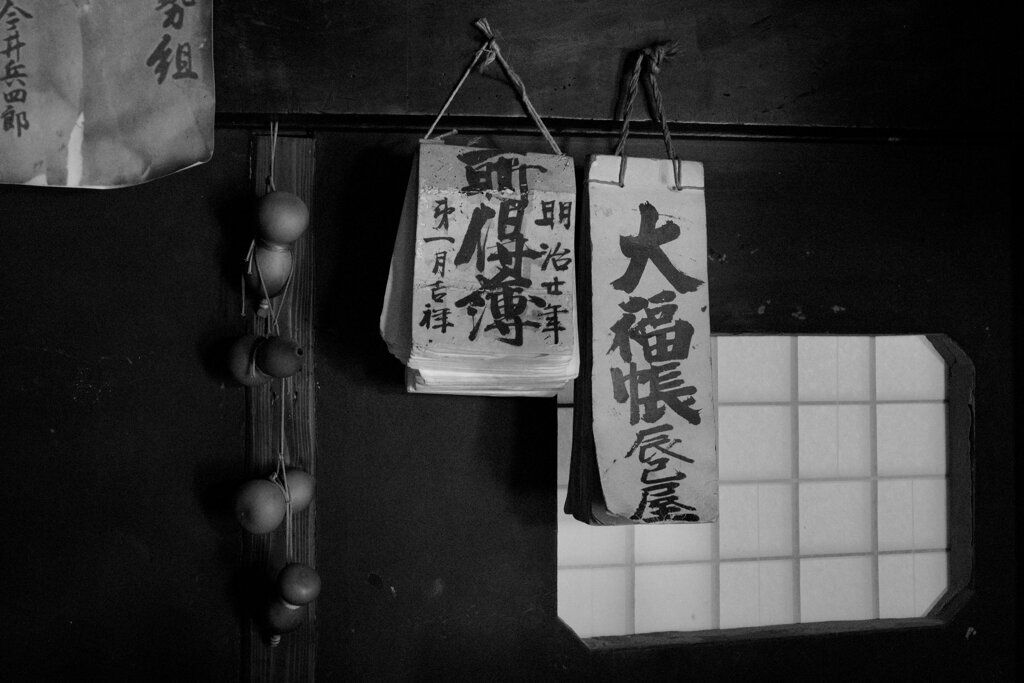 組
今井兵四郎
明治廿年
所得簿
第一月吉祥
大福帳
辰巳屋